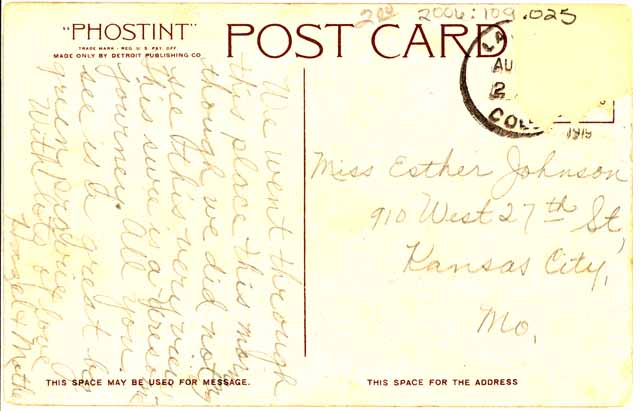 "PHOSTINT"
TRADE MARK - REG. U. S. PAT. OFF
MADE ONLY BY DETROIT PUBLISHING CO.
POST CARD
2006:109.025
AU
2
COL
1915
We went through
this place this morn
though we did not
see this very view
this sure is a tiresome
journey. All you
see is a great big
green prairie
With lots of love
Hazel & Mother
Miss Esther Johnson
910 West 27th St,
Kansas City,
Mo,
THIS SPACE MAY BE USED FOR MESSAGE.
THIS SPACE FOR THE ADDRESS